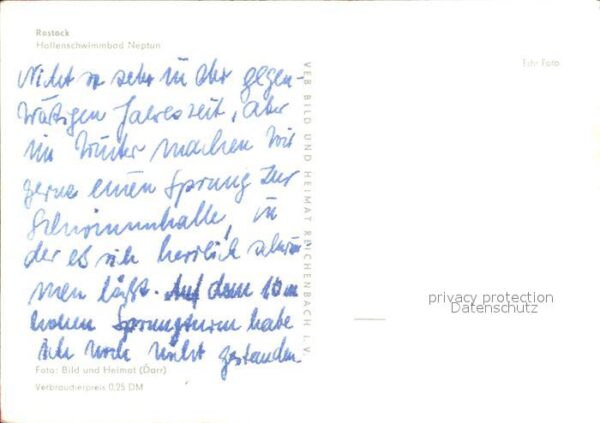 Rostock
Hallenschwimmbad Neptun
Nicht so sehr in der gegen-
wärtigen Jahreszeit, aber
im Winter machen wir
gerne einen Sprung zur
Schwimmhalle, in
der es sich herrlich schwim
men läßt. Auf dem 10 m
hohen Sprungturm habe
ich noch nicht gestanden
Foto: Bild und Heimat (Darr)
Verbraucherpreis 0,25 DM
VEB BILD UND HEIMAT REICHENBACH I. V.
Echt Foto
privacy protection
Datenschutz